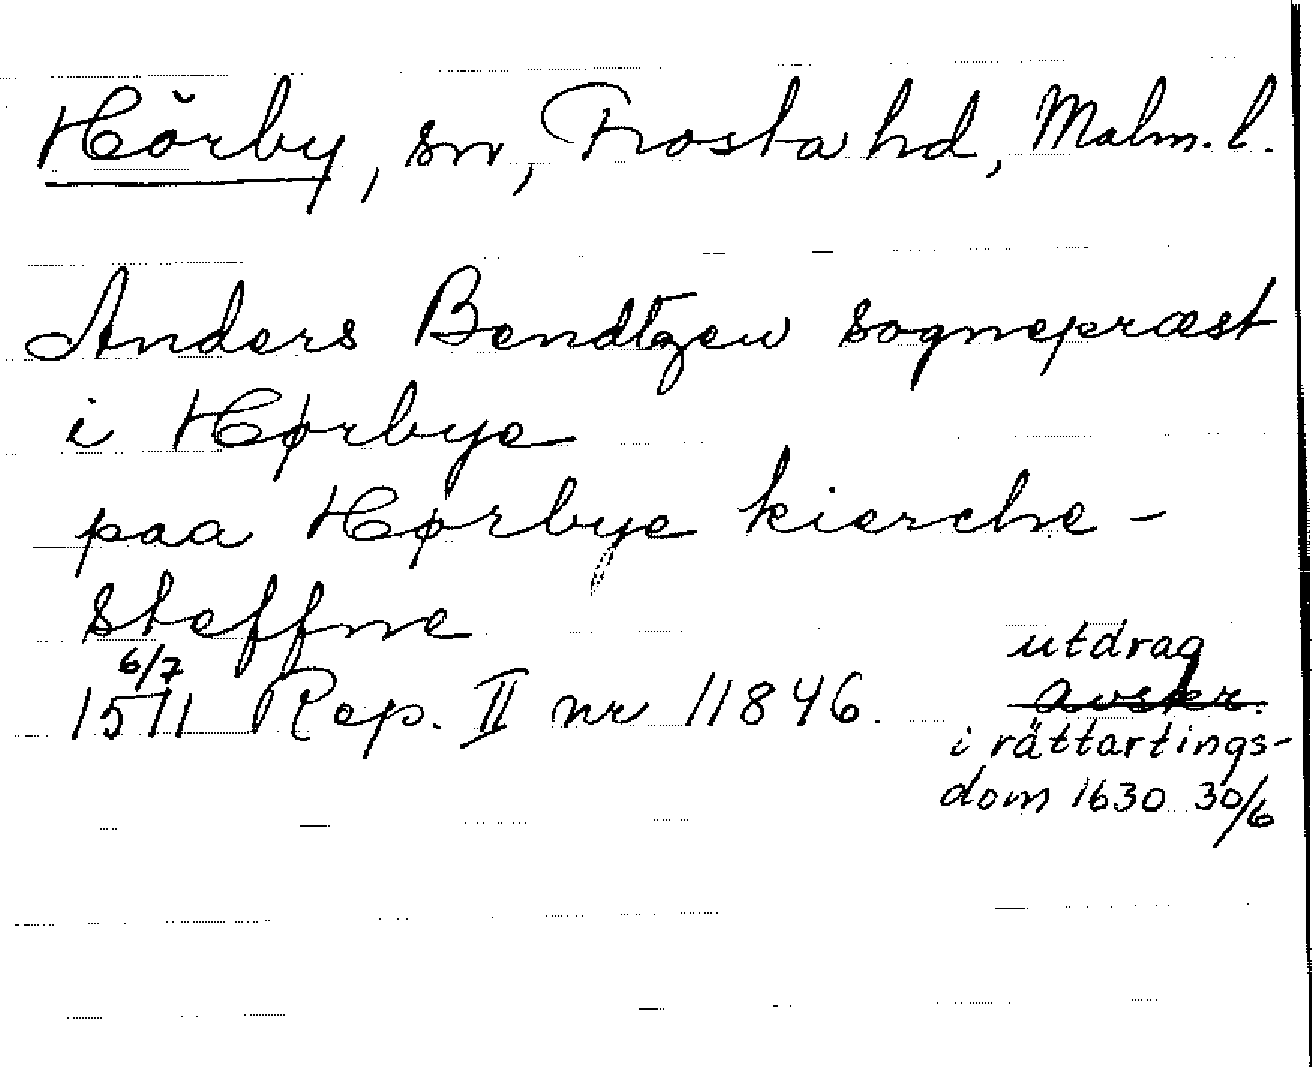 Hörby, sn, Frosta hd, Malm. l.
Anders Bendtzen sognepræst
i Hørbye
paa Hørbye kierche-
steffne
1571 6/7 Rep. II nr 11846.
utdrag
avskr.
i rättartings-
dom 1630 30/6